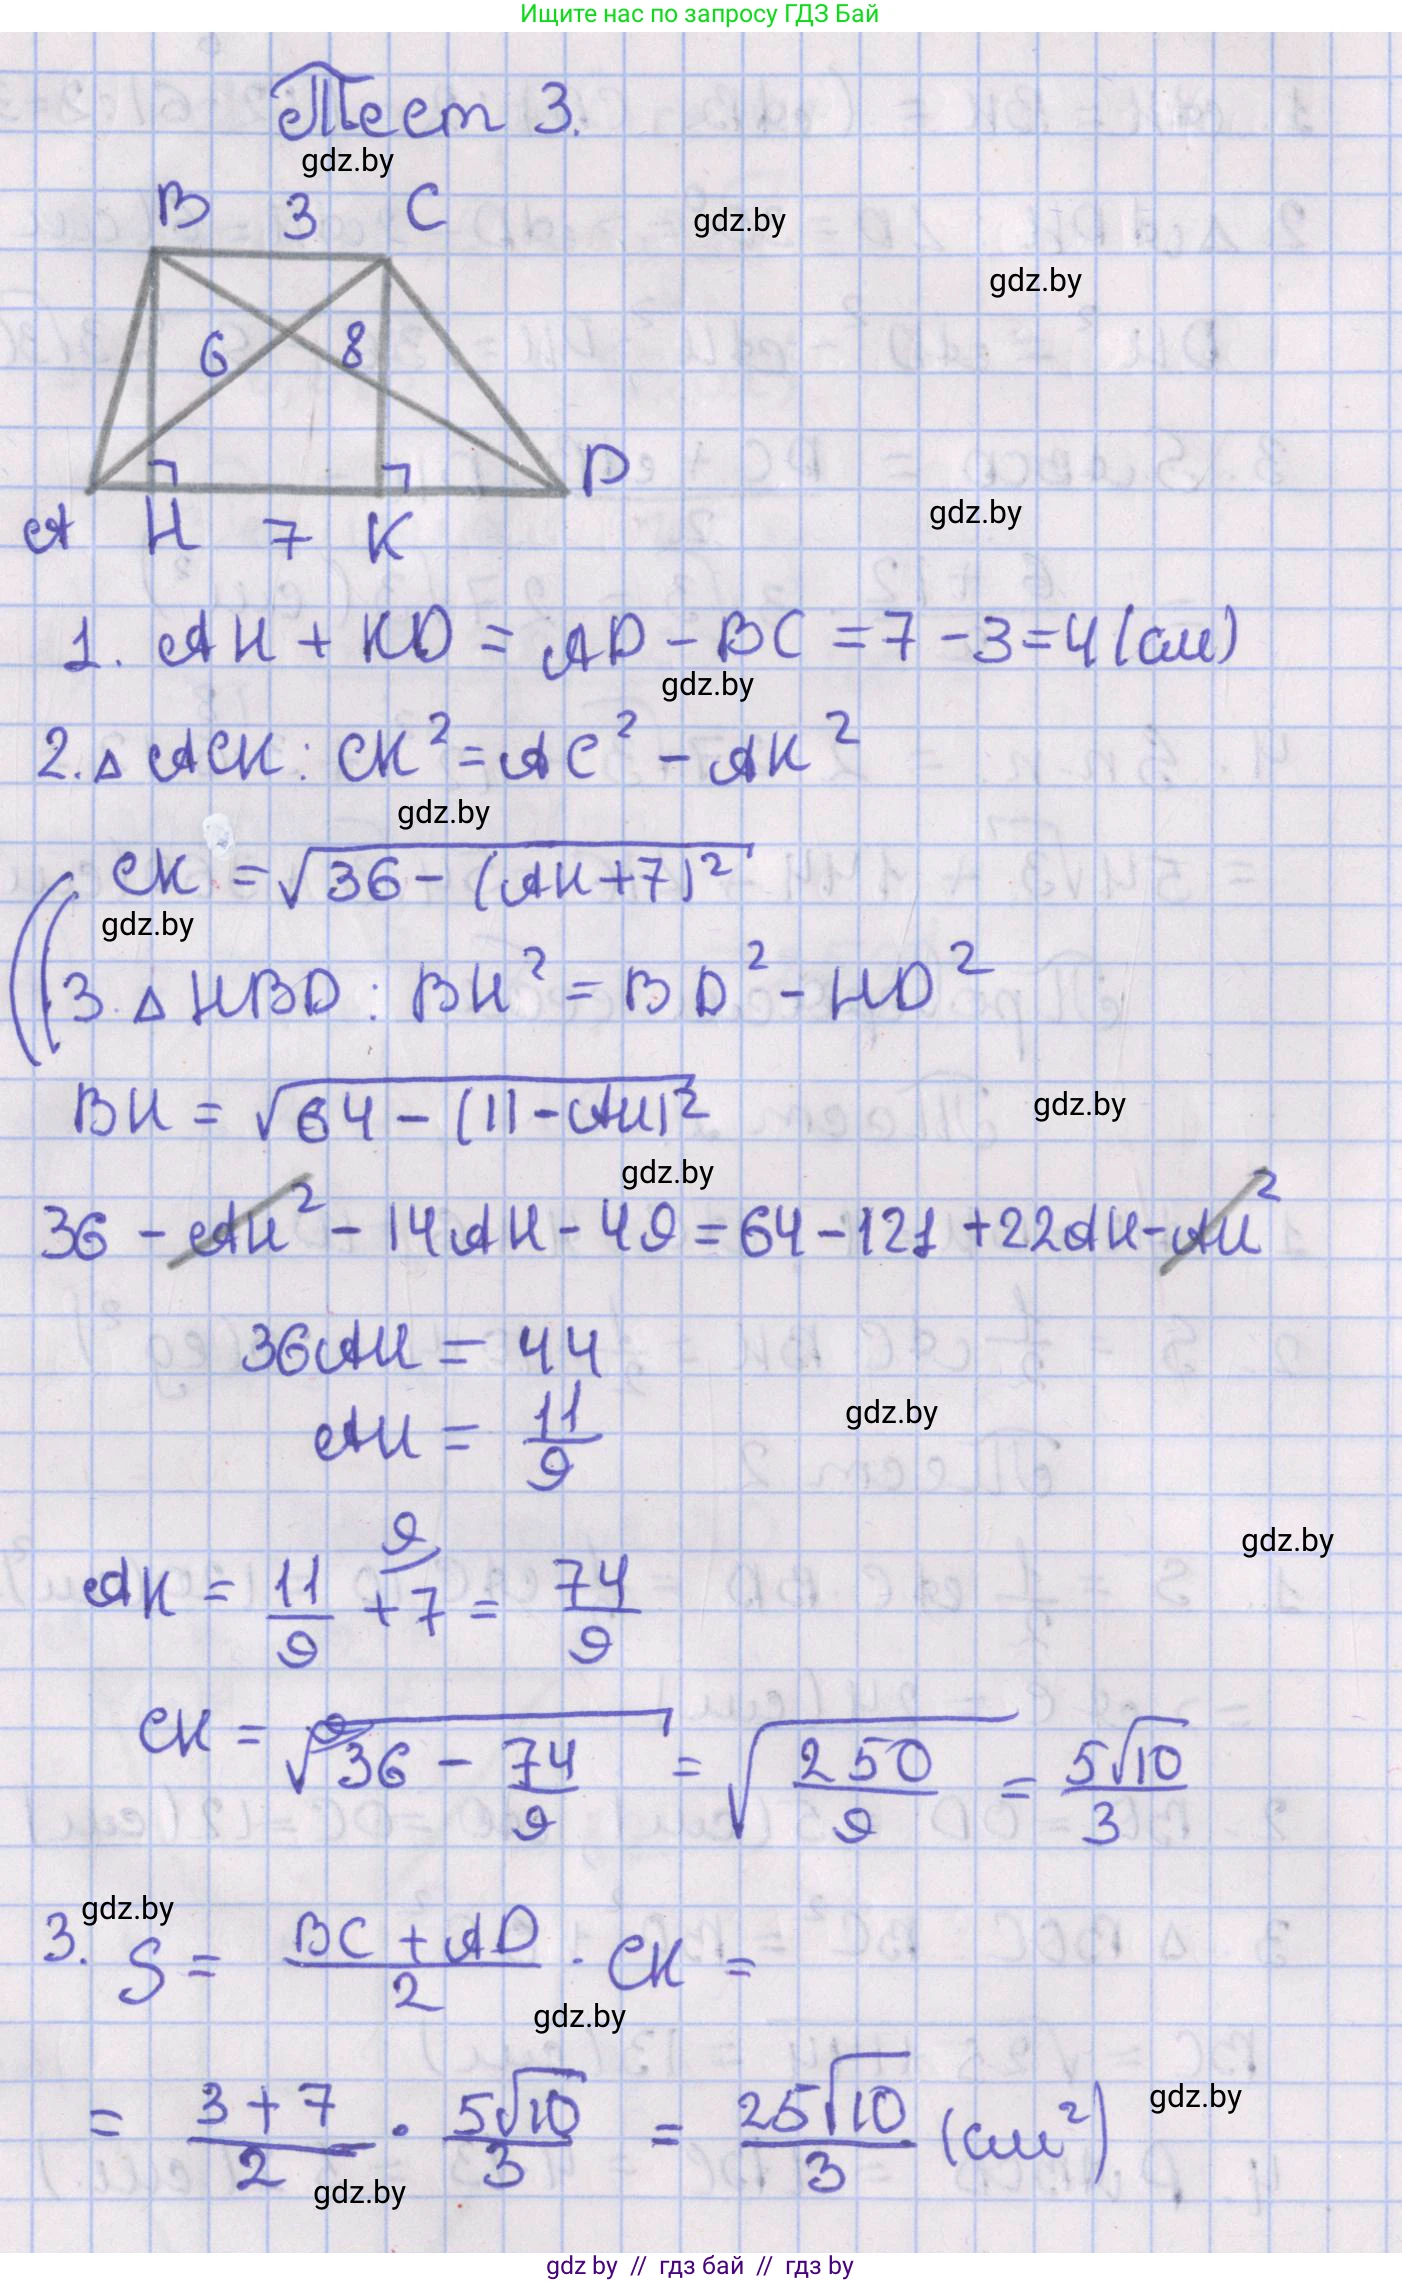 Ищите нас по запросу ГДЗ Бай
Тест 3.
gdz.by
B 3 C
gdz.by
gdz.by
6 8
D
A H 7 K
gdz.by
1. AH + KD = AD - BC = 7 - 3 = 4 (см)
gdz.by
2. △ ACK : CK² = AC² - AK²
gdz.by
CK = √36 - (AH+7)²
gdz.by
3. △ HBD : BH² = BD² - HD²
BH = √64 - (11 - AH)²
gdz.by
gdz.by
36 - AH² - 14AH - 49 = 64 - 121 + 22AH - AH²
36AH = 44
AH = 11/9
gdz.by
gdz.by
AK = 11/9 + 7 9 = 74/9
CK = √36 9 - 74/9 = √250/9 = 5√10/3
gdz.by
3. S = BC + AD/2 · CK =
gdz.by
= 3+7/2 · 5√10/3 = 25√10/3 (см²)
gdz.by
gdz.by
gdz by // гдз бай // гдз by